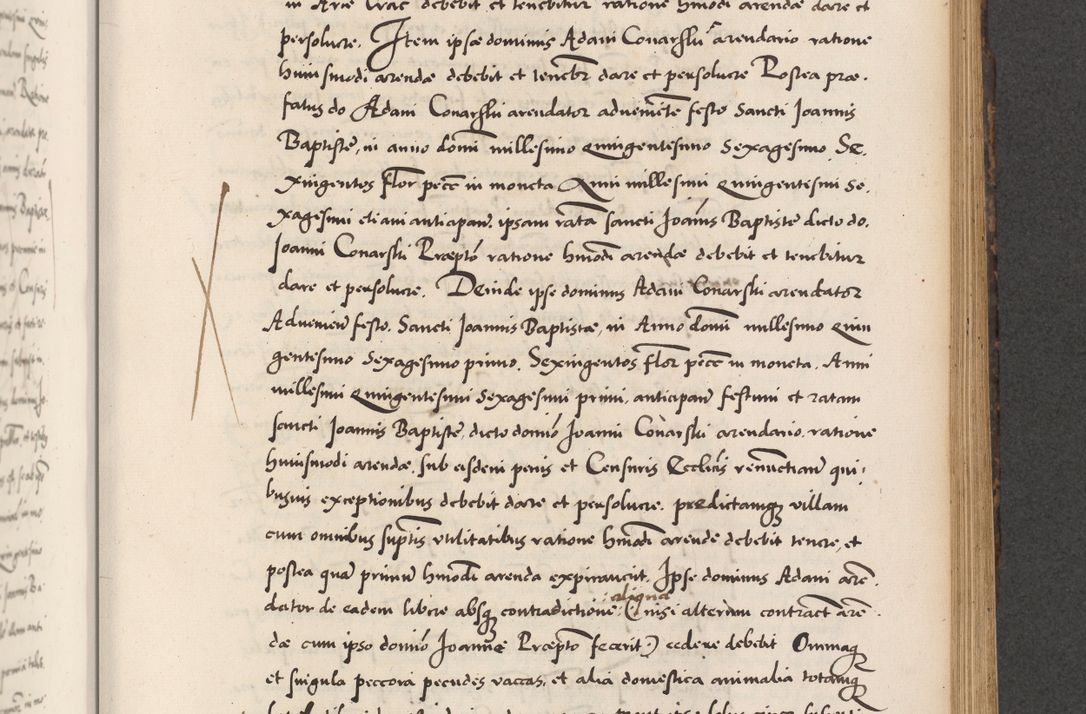 in Arce Crac debebit et tenebitur ratione hmōdi arendæ dare et
persolvere. Item ipse dominus Adam Conarsku arendario ratione
huiusmodi arendæ debebit et tenebr dare et persolvere Postea præ.
fatus do Adam Conarsku arendator adveniēte festo Sancti Joannis
Baptiste, in anno domī millesimo quingentesimo Sexagesimo. Se.
xingentos flor pecē in moneta Anni millesimi quingentesimi Se.
xagesimi etiam anticipań. ipsam rata sancti Joānis Baptiste dicto do.
Joanni Conarski Præptó ratione hmōdi arendæ debebit et tenebitur
dare et persolvere. Deinde ipse dominus Adam Conarski arendator
Advenień festo. Sancti Joannis Baptistæ, in Anno domī millesimo quin
gentesimo Sexagesimo primo. Sexingentos flor pecē in moneta. Anni
millesimi quingentesimi Sexagesimi primi, anticipań festum et ratam
sancti Joannis Baptiste, dicto domió Joanni Conarski arendario, ratione
huiusmodi arendæ, sub eisdem penis et Censuris Ecclīcis renūctiań qui:
busuis exceptionibus debebit dare et persolvere. predictamq̨ villam
cum omnibus suptīs utilitatibus ratione hmōdi arende debebit tenere, et
postea quā primum hmōdi arenda expiraverit. Ipse dominus Adam arē.
dator de eadem libere absq̨ contradictione aliqua (nisi alterum contract arē.
dæ cum ipso domió Joanne Præpto fecerit) cedere debebit Omniaq̨
et singula peccora pecudes vaccas, et alia domestica animalia totamq̨